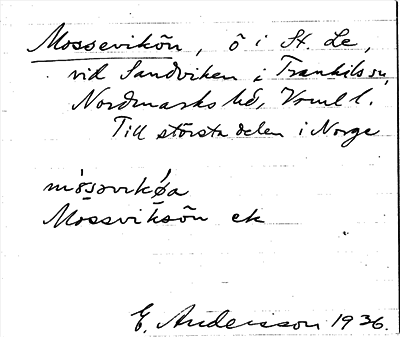 Mossevikön, ö i St. Le,
vid Sandviken i Trankils sn,
Nordmarks hd, Vrml l.
Till största delen i Norge
mo̍s̥s̥əvikø̍a
Mossviksön ek
E. Andersson 1936.